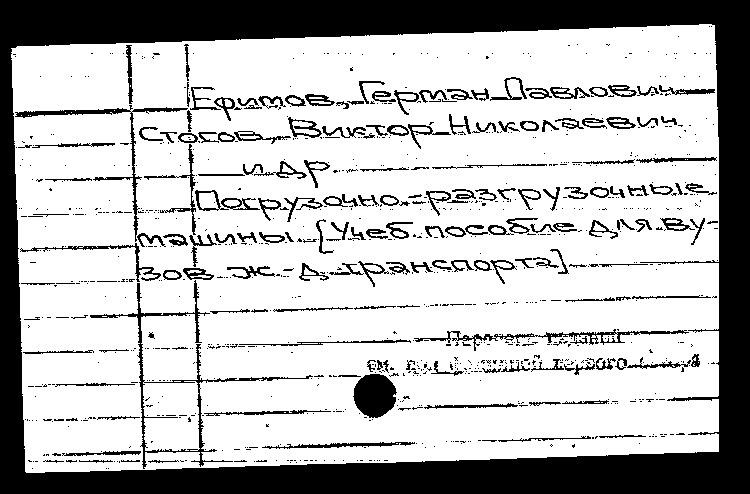 Ефимов, Герман Павлович
Стогов, Виктор Николаевич
и др.
Погрузочно-разгрузочные
машины. [Учеб. пособие для ву-
зов ж.-д. транспорта]
Перечень изданий
см. под фамилией первого автора